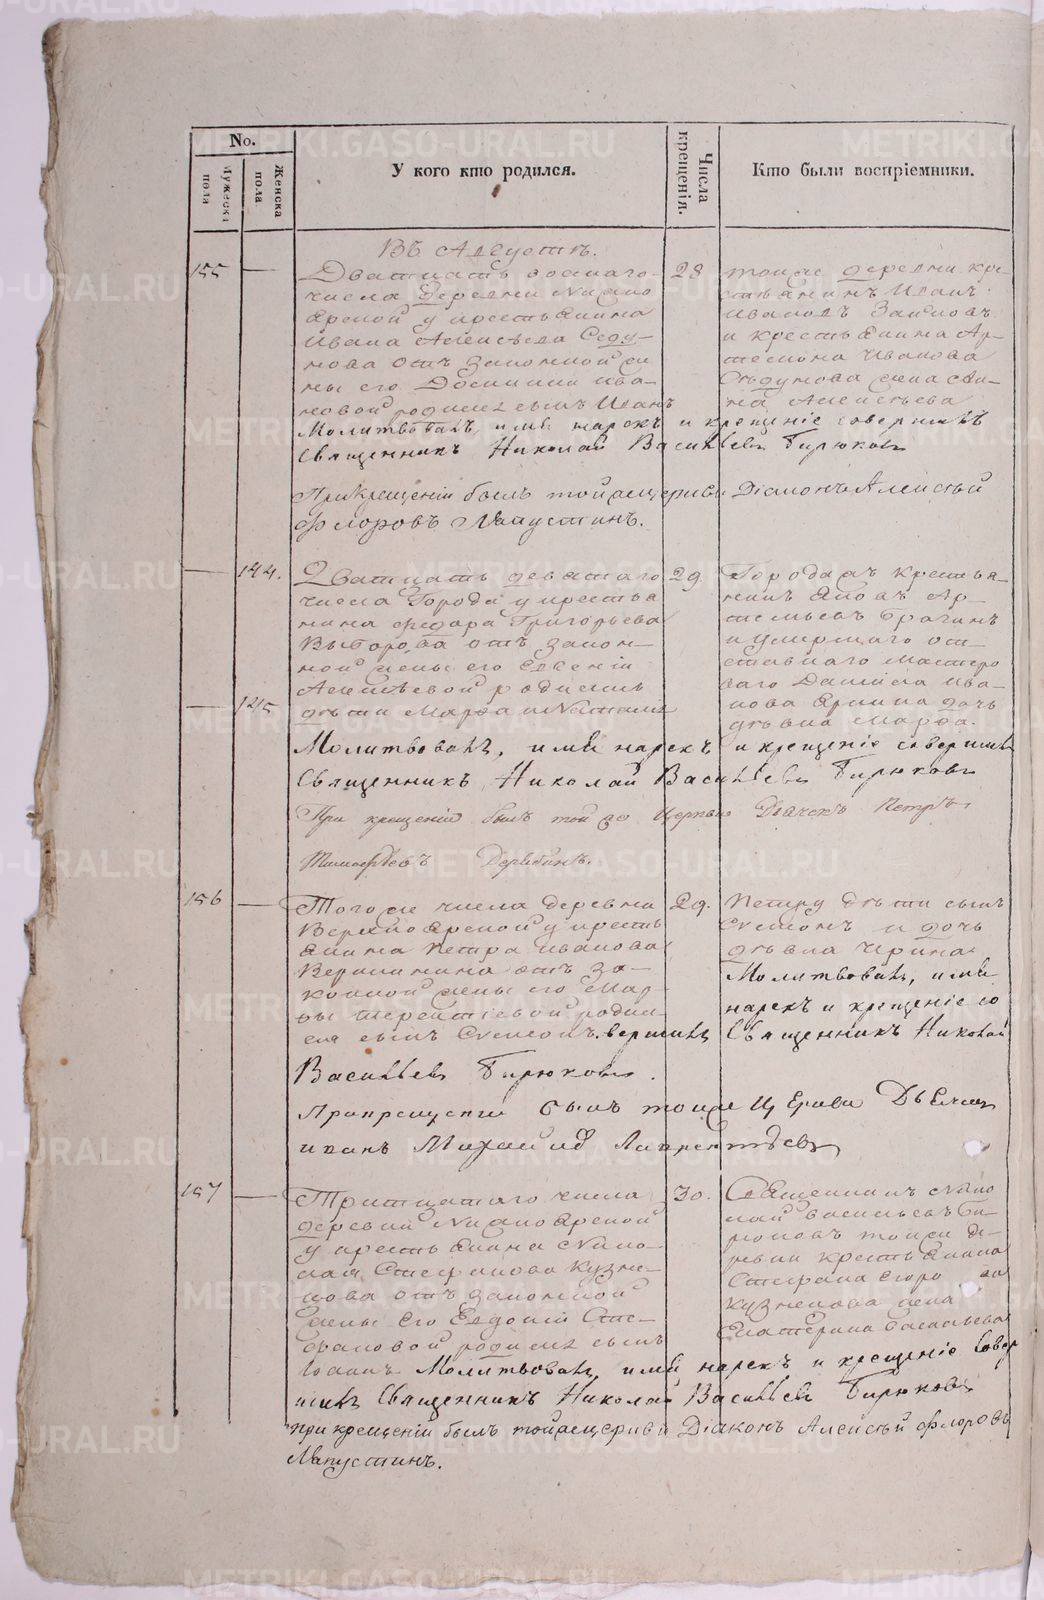 No.
Мужеска пола
Женска пола
У кого кто родился.
Числа крещенія.
Кто были воспріемники.
Въ Августѣ.
155
Дватцать восмаго
числа деревни Нижно
Яреной у крестьянина
Ивана Алексѣева Седу-
нова отъ законной же
ны его Ива-
новой родился сынъ Иванъ
28
тойже деревни кре-
стьянинъ Иванъ
Ивановъ
и крестьянина Ар-
Иванова
Сѣдунова жена Ан-
на Алексѣева
Молитвовалъ, имя нарекъ и крещеніе совершилъ
Священникъ Николай Васильевъ Бирюковъ
При крещеніи былъ тойже церкви Діаконъ Алексѣй
Флоровъ Лапустинъ.
144.
145
Дватцать девятаго
числа Города у крестья
нина Федора Григорьева
Выборова отъ закон-
ной жены его Евгеніи
Алексѣевой родились
дѣти Марфа и Наталья
29.
Города жъ крестья-
нинъ Яковъ Ар-
темьевъ Брагинъ
и умершаго от-
ставнаго мастеро
ваго Даниила Ива-
нова Ярина дочь
дѣвка Марфа.
Молитвовалъ, имя нарекъ и крещеніе совершилъ
Священникъ Николай Васильевъ Бирюковъ
При крещеніи былъ той же Церкви Дьячекъ Петръ
Тимофѣевъ Дерябинъ.
156
Того же числа деревни
Верхно Яреной у кресть
янина Петра Иванова
Вершинина отъ за-
конной жены его Мар-
ѳы Терентіевой родил-
ся сынъ Симеонъ.
29.
Петру дѣти сынъ
Симеонъ и дочь
дѣвка Ирина
Молитвовалъ, имя
нарекъ и крещеніе со
вершилъ Священникъ Николай
Васильевъ Бирюковъ.
При крещеніи былъ тойже Церкви Дьячекъ
Иванъ Лаврентьевъ
157
Тритцатаго числа
деревни Нижно Яреной
у крестьянина Нико-
лая Стефанова Кузне-
цова отъ законной
жены его Евдокіи Сте-
фановой родился сынъ
Іоаннъ
30.
Священникъ Нико
лай Васильевъ Би-
рюковъ тойже де-
ревни крестьянина
Стефана
Кузнецова жена
Екатерина Васильева
Молитвовалъ, имя нарекъ и крещеніе совер
шилъ Священникъ Николай Васильевъ Бирюковъ
при крещеніи былъ тойже церкви Діаконъ Алексѣй Флоровъ
Лапустинъ.